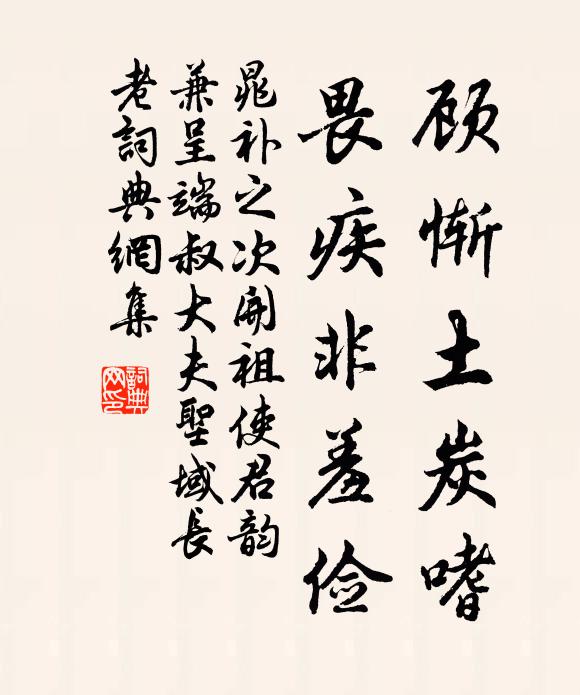 顾惭土炭嗜
畏疾非羞俭
晁补之次開祖使君韵
兼呈端叔大夫聖域長
老詞典網集
詞典
网印